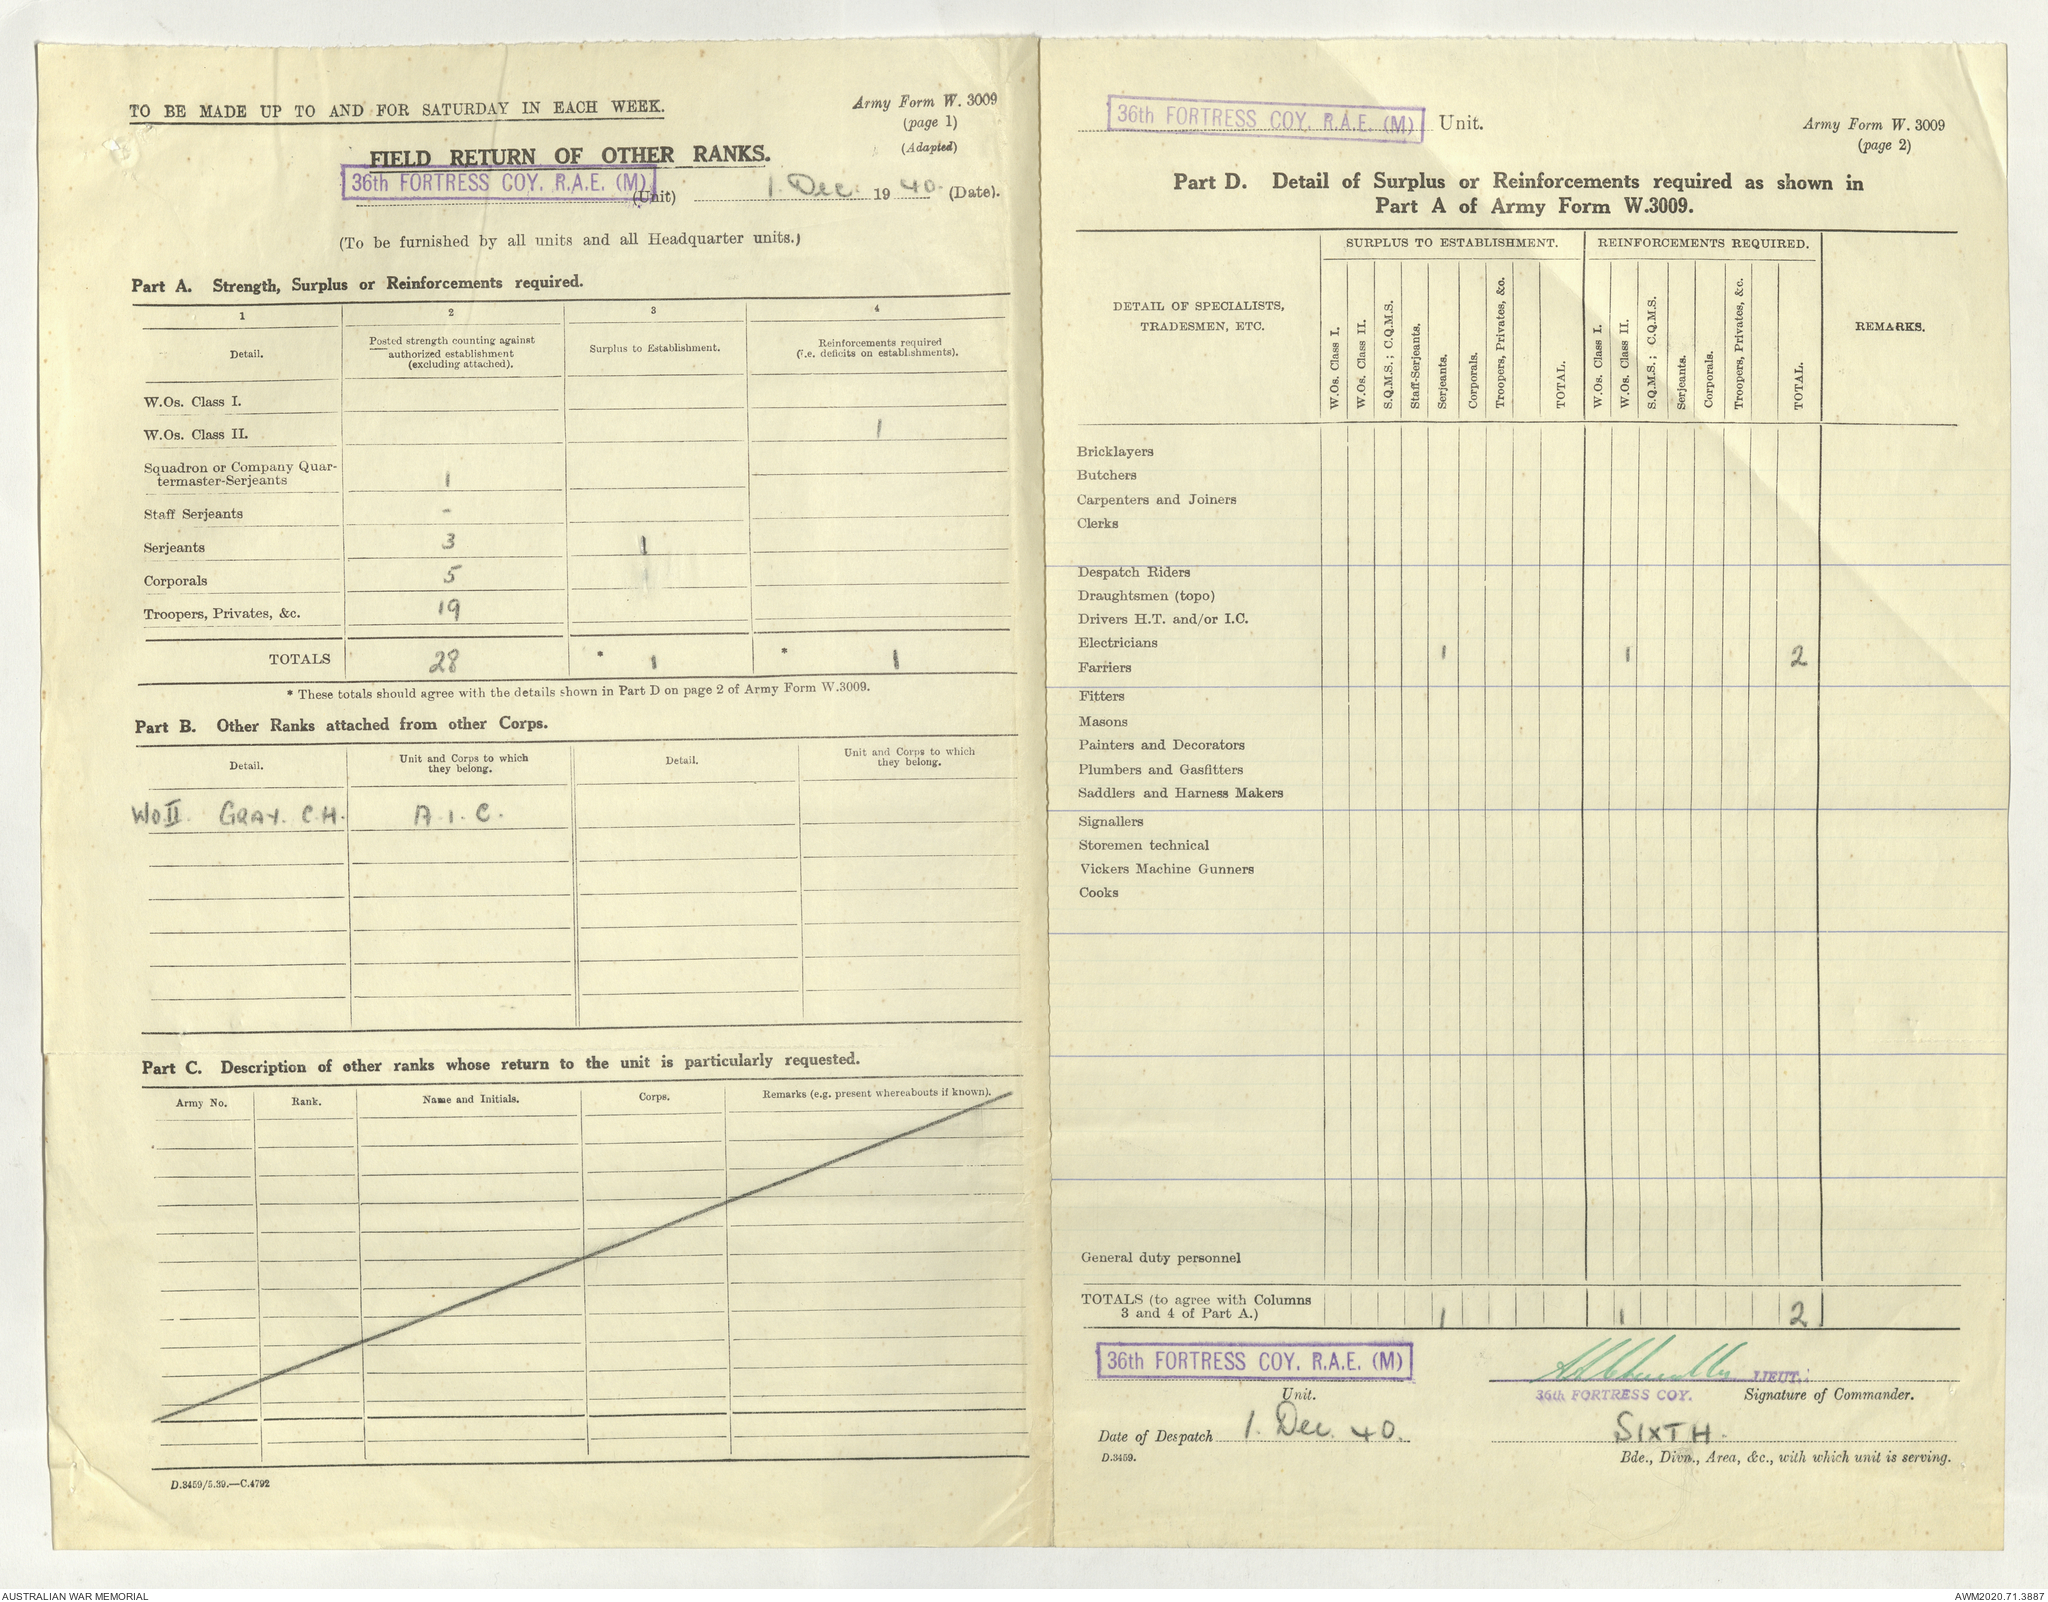 TO BE MADE UP TO AND FOR SATURDAY IN EACH WEEK.
Army Form W. 3009
(page 1)
(Adapted)
FIELD RETURN OF OTHER RANKS.
36th FORTRESS COY. R.A.E. (M) (Unit) 1. Dec. 19 40. (Date).
(To be furnished by all units and all Headquarter units.)
Part A. Strength, Surplus or Reinforcements required.
1 2 3 4
Detail. Posted strength counting against authorized establishment (excluding attached). Surplus to Establishment. Reinforcements required (i.e. deficits on establishments).
W.Os. Class I.
W.Os. Class II. 1
Squadron or Company Quar-
termaster-Serjeants 1
Staff Serjeants -
Serjeants 3 1
Corporals 5
Troopers, Privates, &c. 19
TOTALS 28 * 1 * 1
* These totals should agree with the details shown in Part D on page 2 of Army Form W.3009.
Part B. Other Ranks attached from other Corps.
Detail. Unit and Corps to which they belong. Detail. Unit and Corps to which they belong.
WO.II. GRAY. C.H. A.I.C.
Part C. Description of other ranks whose return to the unit is particularly requested.
Army No. Rank. Name and Initials. Corps. Remarks (e.g. present whereabouts if known).
D.3459/5.39.—C.4792
36th FORTRESS COY. R.A.E. (M) Unit.
Army Form W. 3009
(page 2)
Part D. Detail of Surplus or Reinforcements required as shown in
Part A of Army Form W.3009.
DETAIL OF SPECIALISTS, TRADESMEN, ETC. SURPLUS TO ESTABLISHMENT. REINFORCEMENTS REQUIRED. REMARKS.
W.Os. Class I. W.Os. Class II. S.Q.M.S.; C.Q.M.S. Staff-Serjeants. Serjeants. Corporals. Troopers, Privates, &c. TOTAL. W.Os. Class I. W.Os. Class II. S.Q.M.S.; C.Q.M.S. Serjeants. Corporals. Troopers, Privates, &c. TOTAL.
Bricklayers
Butchers
Carpenters and Joiners
Clerks
Despatch Riders
Draughtsmen (topo)
Drivers H.T. and/or I.C.
Electricians 1 1 2
Farriers
Fitters
Masons
Painters and Decorators
Plumbers and Gasfitters
Saddlers and Harness Makers
Signallers
Storemen technical
Vickers Machine Gunners
Cooks
General duty personnel
TOTALS (to agree with Columns
3 and 4 of Part A.) 1 1 2
36th FORTRESS COY. R.A.E. (M) LIEUT.
Unit. 36th FORTRESS COY. Signature of Commander.
Date of Despatch 1. Dec. 40. SIXTH.
D.3459. Bde., Divn., Area, &c., with which unit is serving.
AUSTRALIAN WAR MEMORIAL
AWM2020.71.3887